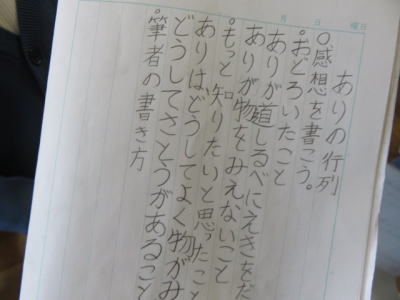 月 日 曜日
ありの行列
○感想を書こう。
○おどろいたこと
ありが道しるべにえきをだ
ありが物をみえないこと
○もっと知りたいと思ったこと
ありは、どうしてよく物がみ
どうしてさとうがあること
○筆者の書き方